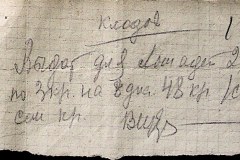 кладов
Выдат для Лошадей 2
по 3 кр. на 8 дня 48 кр. /с
сем кр.